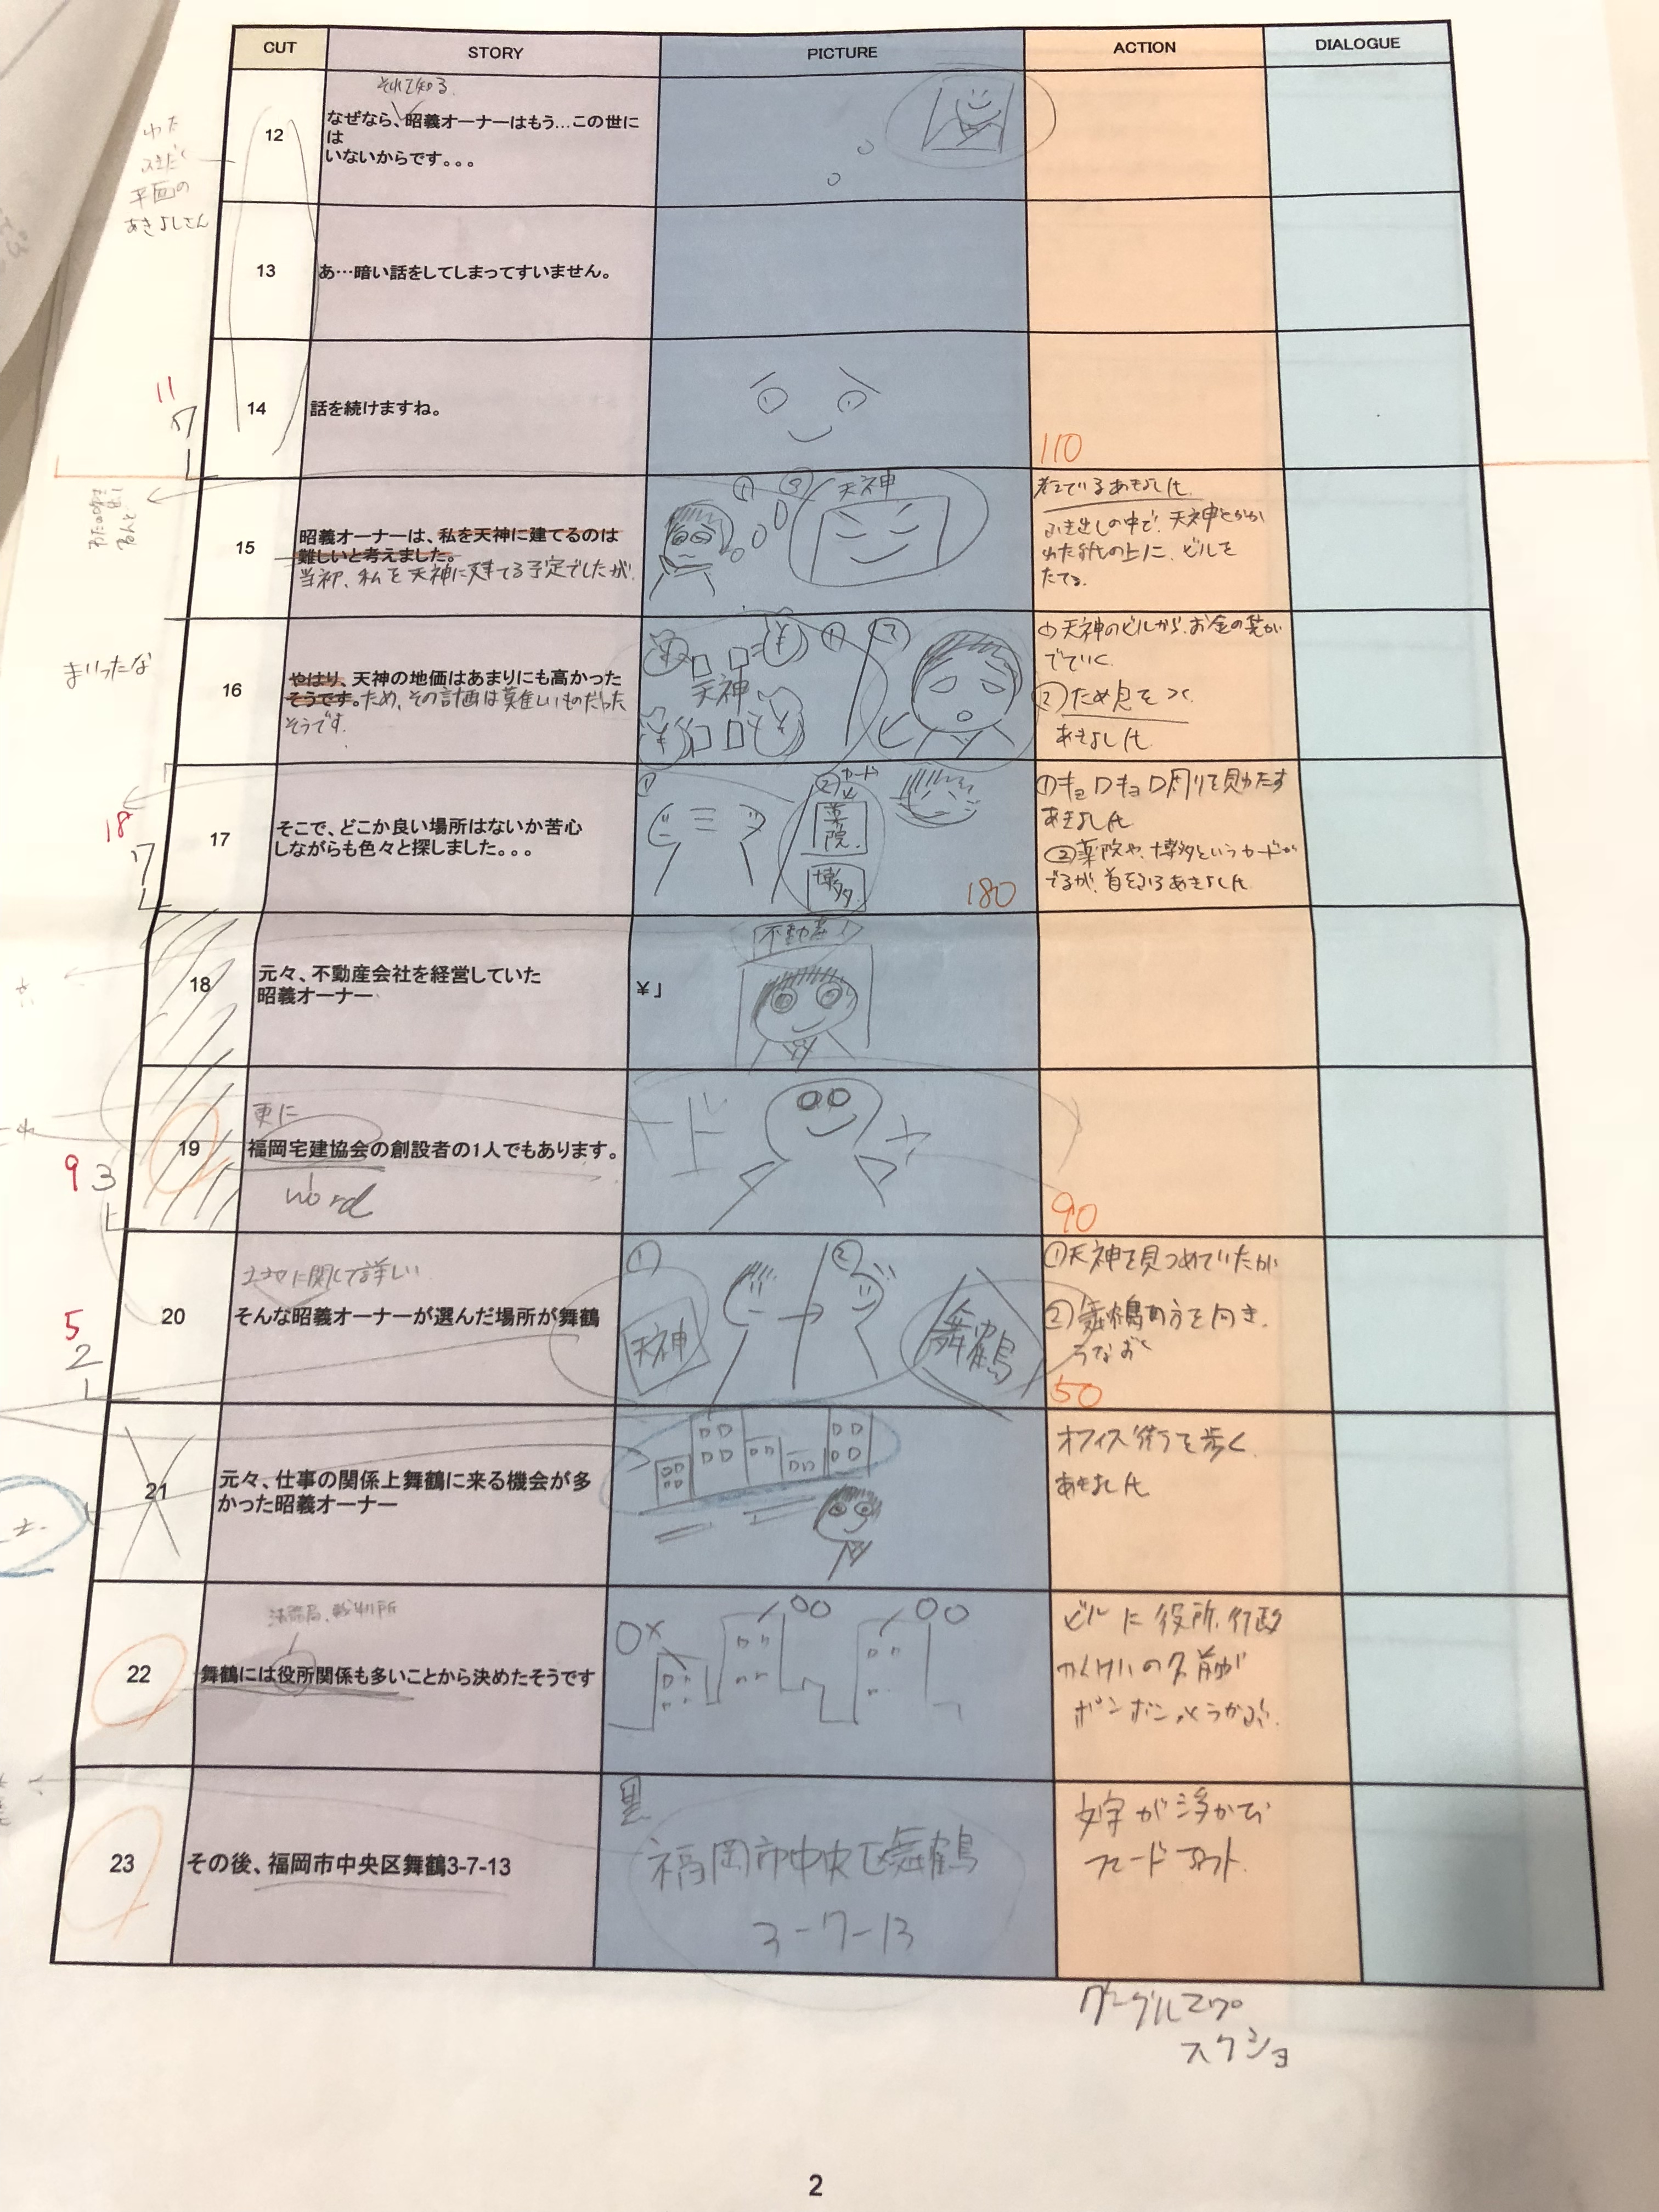 CUT STORY PICTURE ACTION DIALOGUE
それで知る
12
なぜなら、昭義オーナーはもう…この世に
は
いないからです。。。
平面の
あきよしさん
13
あ…暗い話をしてしまってすいません。
11
7
14
話を続けますね。
110
15
昭義オーナーは、私を天神に建てるのは
難しいと考えました。
当初、私を天神に建てる予定でしたが
① ②
天神
考えているあきよし氏
ふき出しの中で、天神とかか
れた
の上に、ビルを
たてる。
まいったな
16
やはり、天神の地価はあまりにも高かった
そうです。ため、その計画は難しいものだった
そうです。
天神
① ②
¥
①天神のビルから、お金の
が
でていく
②ため息をつく
あきよし氏
18
7
17
そこで、どこか良い場所はないか苦心
しながらも色々と探しました。。。
① ②カード
薬院
博多
180
①キョロキョロ周りを見わたす
あきよし氏
②薬院や、博多というカードが
でるが、首をふるあきよし氏
18
元々、不動産会社を経営していた
昭義オーナー
¥」
不動産
9
3
19
更に
福岡宅建協会の創設者の1人でもあります。
word
90
5
2
20
土地に関して詳しい
そんな昭義オーナーが選んだ場所が舞鶴
① ②
天神
舞鶴
①天神を見つめていたが
②舞鶴の方を向き、
うなずく
50
21
元々、仕事の関係上舞鶴に来る機会が多
かった昭義オーナー
オフィス街を歩く
あきよし氏
22
法務局、裁判所
舞鶴には役所関係も多いことから決めたそうです
○× ○○ ○○
ビルに役所、行政
かんけいの名前が
ボンボンとうかぶ。
23
その後、福岡市中央区舞鶴3-7-13
黒
福岡市中央区舞鶴
3-7-13
文字が浮かび
フェードアウト。
グーグルマップ
スクショ
2